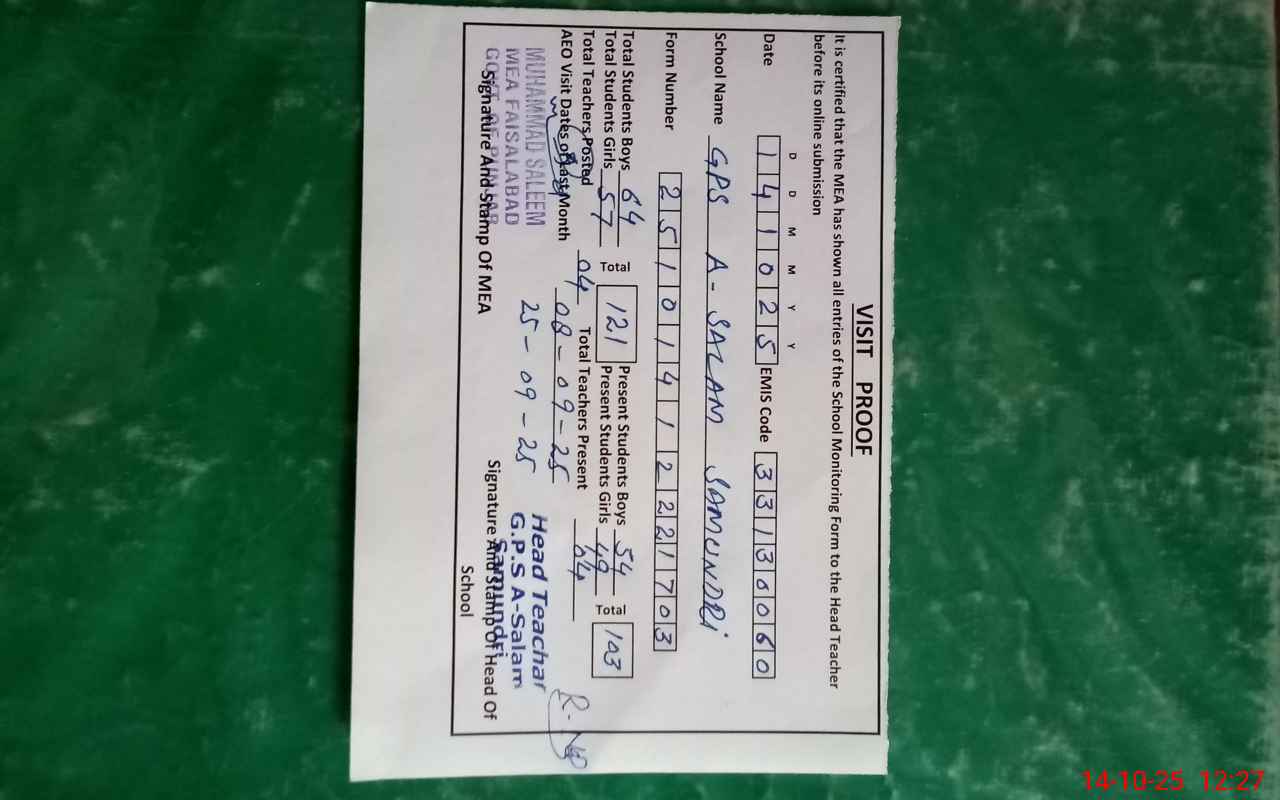 VISIT PROOF
It is certified that the MEA has shown all entries of the School Monitoring Form to the Head Teacher
before its online submission
D D M M Y Y
Date 141025 EMIS Code 33130060
School Name GPS A-SALAM SAMUNDRi
Form Number 25101412221703
Total Students Boys 64 Total 121 Present Students Boys 54 Total 103
Total Students Girls 57 Present Students Girls 49
Total Teachers Posted 04 Total Teachers Present 04
AEO Visit Dates of Last Month 08-09-25
25-09-25
MUHAMMAD SALEEM
MEA FAISALABAD
GOVT OF PUNJAB
Signature And Stamp Of MEA
Head Teachar
G.P.S A-Salam
Samundri
Signature And Stamp Of Head Of
School
14-10-25 12:27